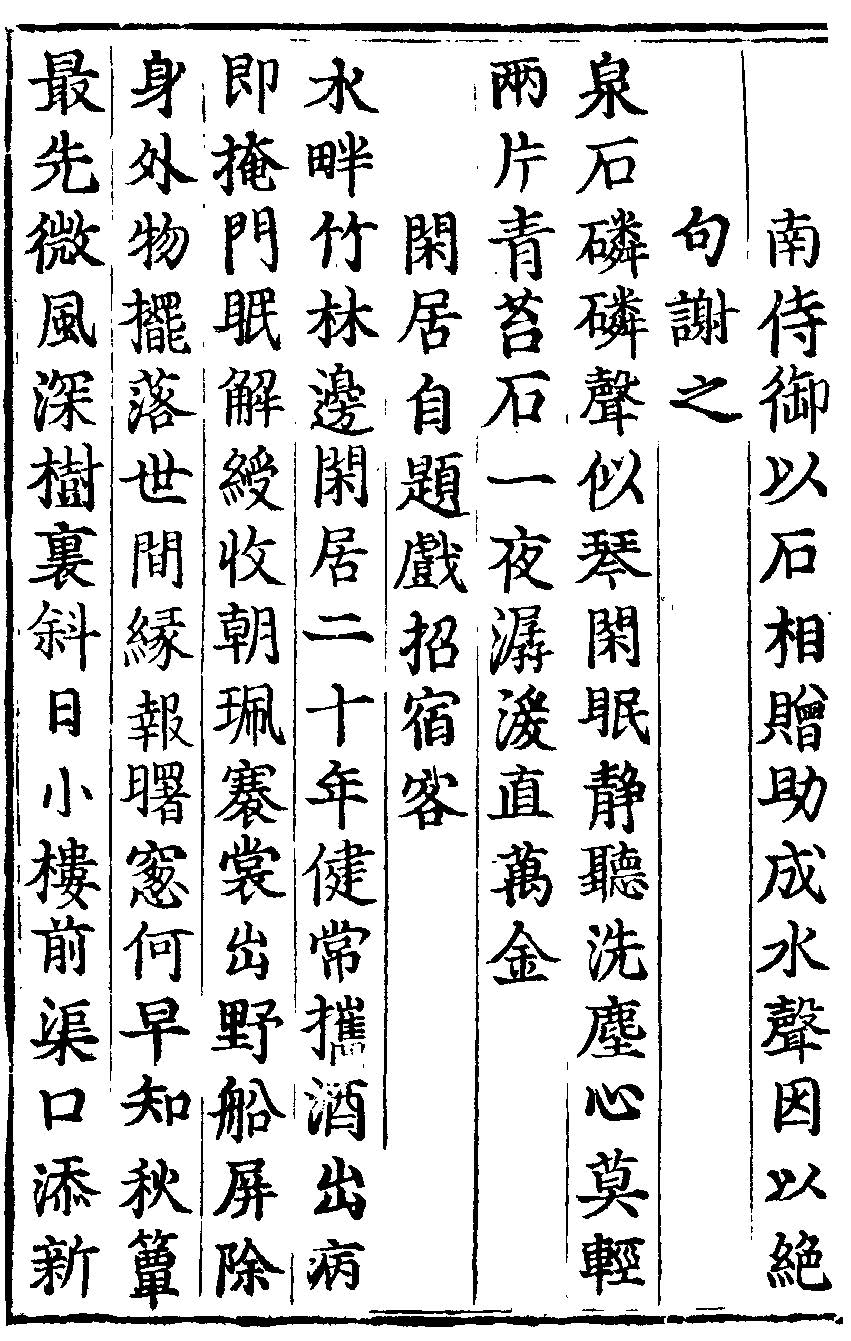 南侍御以石相贈助成水聲因以絶
句謝之
泉石磷磷聲似琴閑眠静聽洗塵心莫輕
兩片青苔石一夜潺湲直萬金
閑居自題戲招宿客
水畔竹林邊閑居二十年健常攜酒出病
即掩門眠解綬收朝珮褰裳出野船屏除
身外物擺落世間緣報曙窻何早知秋簟
最先微風深樹裏斜日小樓前渠口添新